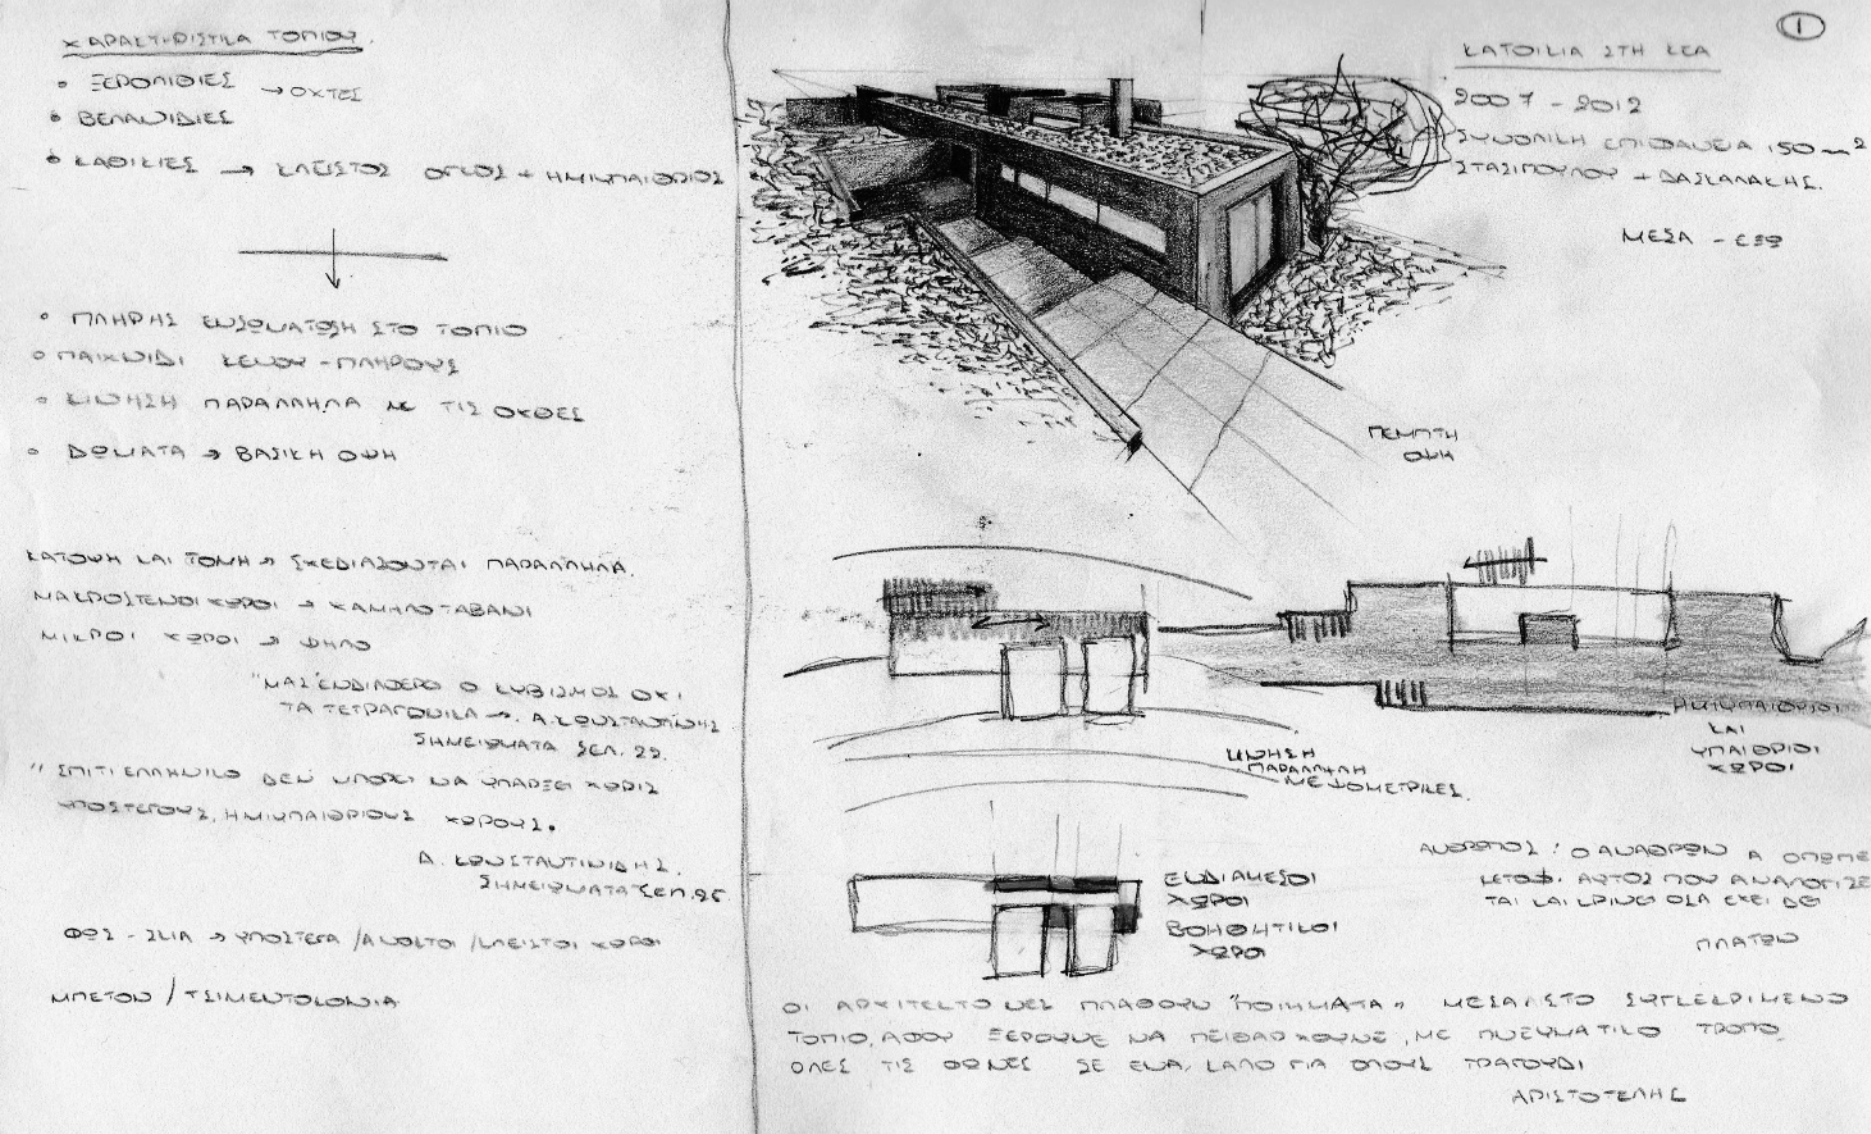 ΧΑΡΑΚΤΗΡΙΣΤΙΚΑ ΤΟΠΙΟΥ.
• ΞΕΡΟΛΙΘΙΕΣ → ΟΧΤΕΣ
• ΒΕΛΑΝΙΔΙΕΣ
• ΚΑΘΙΚΙΕΣ → ΚΛΕΙΣΤΟΣ ΟΓΚΟΣ + ΗΜΙΥΠΑΙΘΡΙΟΣ
• ΠΛΗΡΗΣ ΕΝΣΩΜΑΤΩΣΗ ΣΤΟ ΤΟΠΙΟ
• ΠΑΙΧΝΙΔΙ ΚΕΝΟΥ - ΠΛΗΡΟΥΣ
• ΚΙΝΗΣΗ ΠΑΡΑΛΛΗΛΑ ΜΕ ΤΙΣ ΟΧΘΕΣ
• ΔΩΜΑΤΑ → ΒΑΣΙΚΗ ΟΨΗ
ΚΑΤΟΨΗ ΚΑΙ ΤΟΜΗ → ΣΧΕΔΙΑΖΟΝΤΑΙ ΠΑΡΑΛΛΗΛΑ.
ΜΑΚΡΟΣΤΕΝΟΙ ΧΩΡΟΙ → ΧΑΜΗΛΟ ΤΑΒΑΝΙ
ΜΙΚΡΟΙ ΧΩΡΟΙ → ΨΗΛΟ
"ΜΑΣ ΕΝΔΙΑΦΕΡΕΙ Ο ΚΥΒΙΣΜΟΣ ΟΧΙ
ΤΑ ΤΕΤΡΑΓΩΝΙΚΑ → Α. ΚΩΝΣΤΑΝΤΙΝΙΔΗΣ
ΣΗΜΕΙΩΜΑΤΑ ΣΕΛ. 22.
"ΣΠΙΤΙ ΕΛΛΗΝΙΚΟ ΔΕΝ ΜΠΟΡΕΙ ΝΑ ΥΠΑΡΞΕΙ ΧΩΡΙΣ
ΥΠΟΣΤΕΓΟΥΣ, ΗΜΙΥΠΑΙΘΡΙΟΥΣ ΧΩΡΟΥΣ.
Α. ΚΩΝΣΤΑΝΤΙΝΙΔΗΣ.
ΣΗΜΕΙΩΜΑΤΑ ΣΕΛ.
ΦΩΣ - ΣΚΙΑ → ΥΠΟΣΤΕΓΑ / ΑΝΟΙΚΤΟΙ / ΚΛΕΙΣΤΟΙ ΧΩΡΟΙ
ΜΠΕΤΟΝ / ΤΣΙΜΕΝΤΟΚΟΝΙΑ
1
ΚΑΤΟΙΚΙΑ ΣΤΗ ΚΕΑ
2007 - 2012
ΣΥΝΟΛΙΚΗ ΕΠΙΦΑΝΕΙΑ 150 m²
ΣΤΑΣΙΠΟΥΛΟΥ + ΔΑΣΚΑΛΑΚΗΣ.
ΜΕΣΑ - ΕΞΩ
ΠΕΜΠΤΗ
ΟΨΗ
ΚΙΝΗΣΗ
ΠΑΡΑΛΛΗΛΗ
ΜΕ ΥΨΟΜΕΤΡΙΚΕΣ.
ΗΜΙΥΠΑΙΘΡΙΟΙ
ΚΑΙ
ΥΠΑΙΘΡΙΟΙ
ΧΩΡΟΙ
ΕΝΔΙΑΜΕΣΟΙ
ΧΩΡΟΙ
ΒΟΗΘΗΤΙΚΟΙ
ΧΩΡΟΙ
ΑΝΘΡΩΠΟΣ: Ο ΑΝΑΘΡΩΝ Α ΟΠΩΠΕ
ΜΕΤΑΦ. ΑΥΤΟΣ ΠΟΥ ΑΝΑΛΟΓΙΖΕ
ΤΑΙ ΚΑΙ ΚΡΙΝΕΙ ΟΣΑ ΕΧΕΙ ΔΕΙ
ΠΛΑΤΩΝ
ΟΙ ΑΡΧΙΤΕΚΤΟΝΕΣ ΠΛΑΘΟΥΝ "ΠΟΙΗΜΑΤΑ" ΜΕΣΑ ΣΤΟ ΣΥΓΚΕΚΡΙΜΕΝΟ
ΤΟΠΙΟ, ΑΦΟΥ ΞΕΡΟΥΝΕ ΝΑ ΠΕΙΘΑΡΧΟΥΝΕ, ΜΕ ΠΝΕΥΜΑΤΙΚΟ ΤΡΟΠΟ,
ΟΛΕΣ ΤΙΣ ΦΩΝΕΣ ΣΕ ΕΝΑ, ΚΑΛΟ ΓΙΑ ΟΛΟΥΣ ΤΡΑΓΟΥΔΙ
ΑΡΙΣΤΟΤΕΛΗΣ